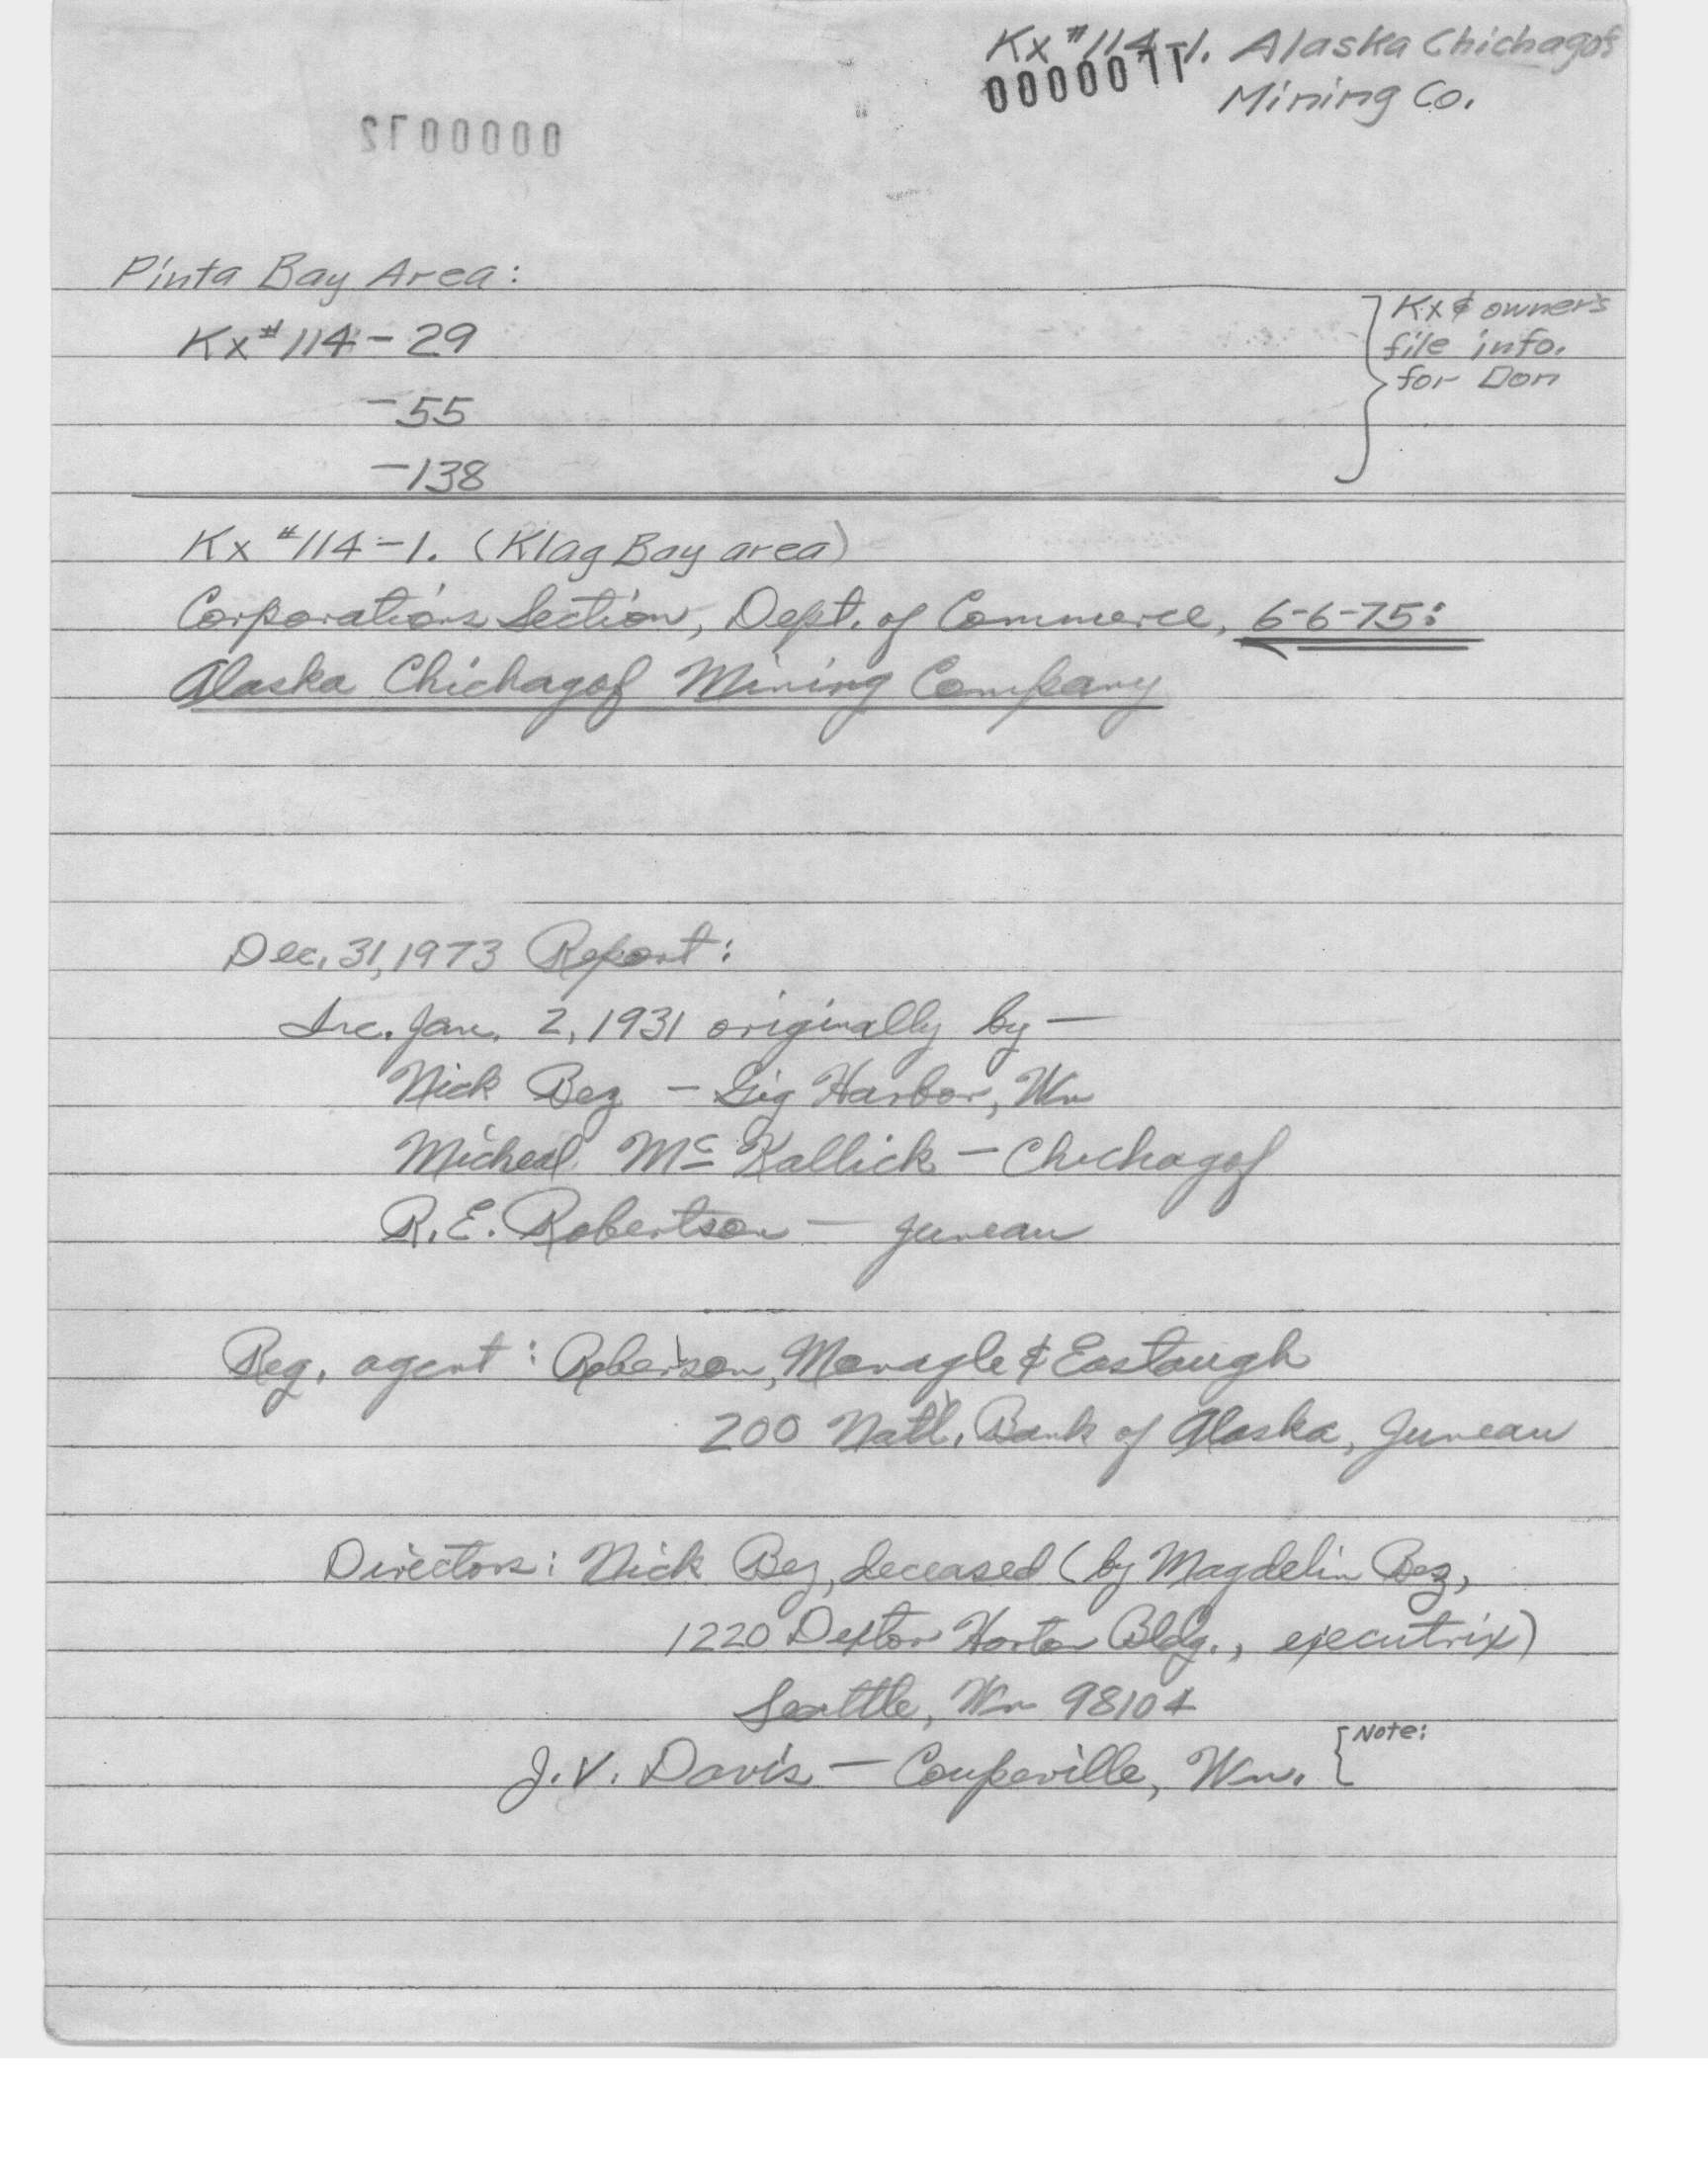 Kx #114-1. Alaska Chichagof
0000011
Mining Co.
Pinta Bay Area:
Kx #114-29
-55
-138
Kx & owner's
file info.
for Don
Kx #114-1. (Klag Bay area)
Corporations Section, Dept. of Commerce, 6-6-75:
Alaska Chichagof Mining Company
Dec. 31, 1973 Report:
Inc. Jan. 2, 1931 originally by —
Nick Bez - Gig Harbor, Wn
Micheal Mc Kallick - Chichagof
R.E. Robertson - Juneau
Reg. agent: Robertson, Monagle & Eastaugh
200 Natl. Bank of Alaska, Juneau
Directors: Nick Bez, deceased (by Magdelin Bez,
1220 Dexter Horton Bldg., executrix)
Seattle, Wn 98104
J.V. Davis - Coupeville, Wn.
Note: